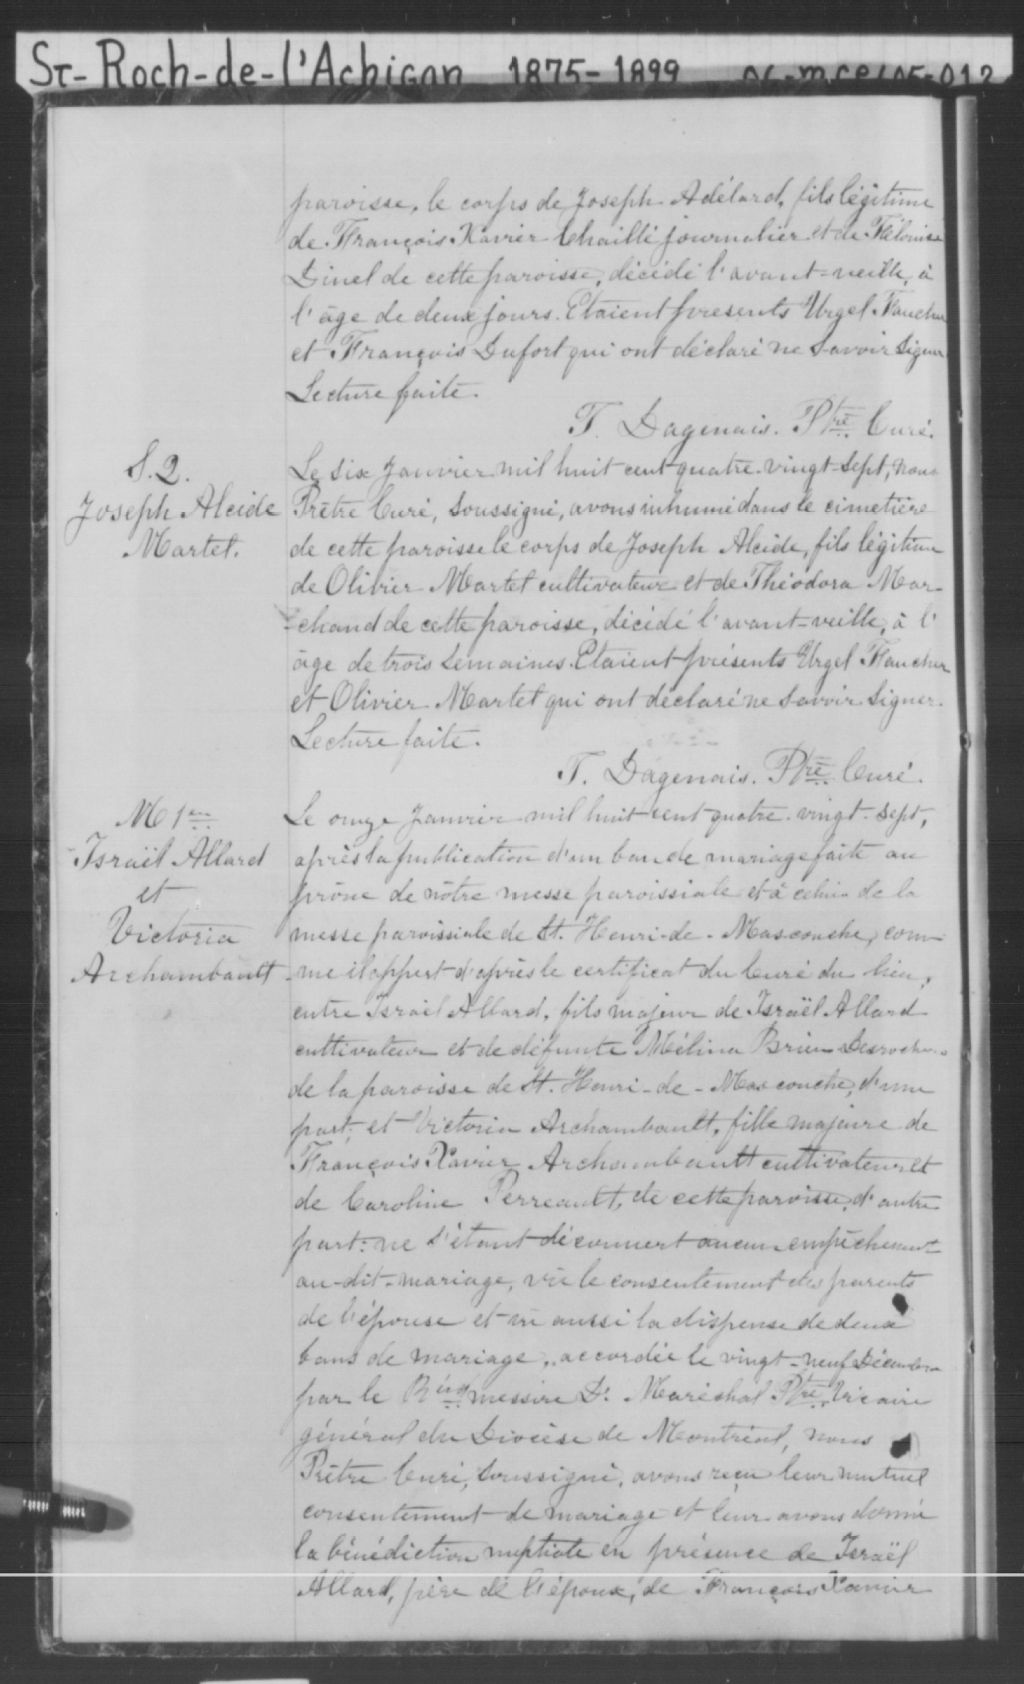 St-Roch-de-l'Achigan 1875-1899
paroisse, le corps de Joseph Adélard, fils légitime
de François Xavier Chaillé journalier et de
Dinel de cette paroisse, décédé l'avant-veille, à
l'âge de deux jours. Étaient présents Urgel Faucher
et François Dufort qui ont déclaré ne savoir signer
Lecture faite.
T. Dagenais. Ptre Curé.
S. 2.
Joseph Alcide
Martel.
Le six Janvier mil huit cent quatre-vingt-sept, nous
Prêtre Curé, soussigné, avons inhumé dans le cimetière
de cette paroisse le corps de Joseph Alcide, fils légitime
de Olivier Martel cultivateur et de Théodora Mar-
-chand de cette paroisse, décédé l'avant-veille, à l'
âge de trois semaines. Étaient présents Urgel Faucher
et Olivier Martel qui ont déclaré ne savoir signer.
Lecture faite.
T. Dagenais. Ptre Curé.
M 1er
Israël Allard
et
Victoria
Archambault
Le onze Janvier mil huit cent quatre-vingt-sept,
après la publication d'un ban de mariage faite au
prône de nôtre messe paroissiale et à celui de la
messe paroissiale de St. Henri-de-Mascouche, com-
-me il appert d'après le certificat du Curé du lieu,
entre Israël Allard, fils majeur de Israël Allard
cultivateur et de défunte Mélina Brien Desrochers
de la paroisse de St. Henri-de-Mascouche, d'une
part, et Victoria Archambault, fille majeure de
François Xavier Archambault cultivateur et
de Caroline Perreault, de cette paroisse, d'autre
part: ne s'étant découvert aucun empêchement
au-dit-mariage, vû le consentement des parents
de l'épouse et vû aussi la dispense de deux
bans de mariage, accordée le vingt-neuf Décembre
par le Rév messire L. Maréchal Ptre, Vicaire
général du Diocèse de Montréal, nous
Prêtre Curé, soussigné, avons reçu leur mutuel
consentement de mariage et leur avons donné
la bénédiction nuptiale en présence de Israël
Allard, père de l'époux, de François Xavier